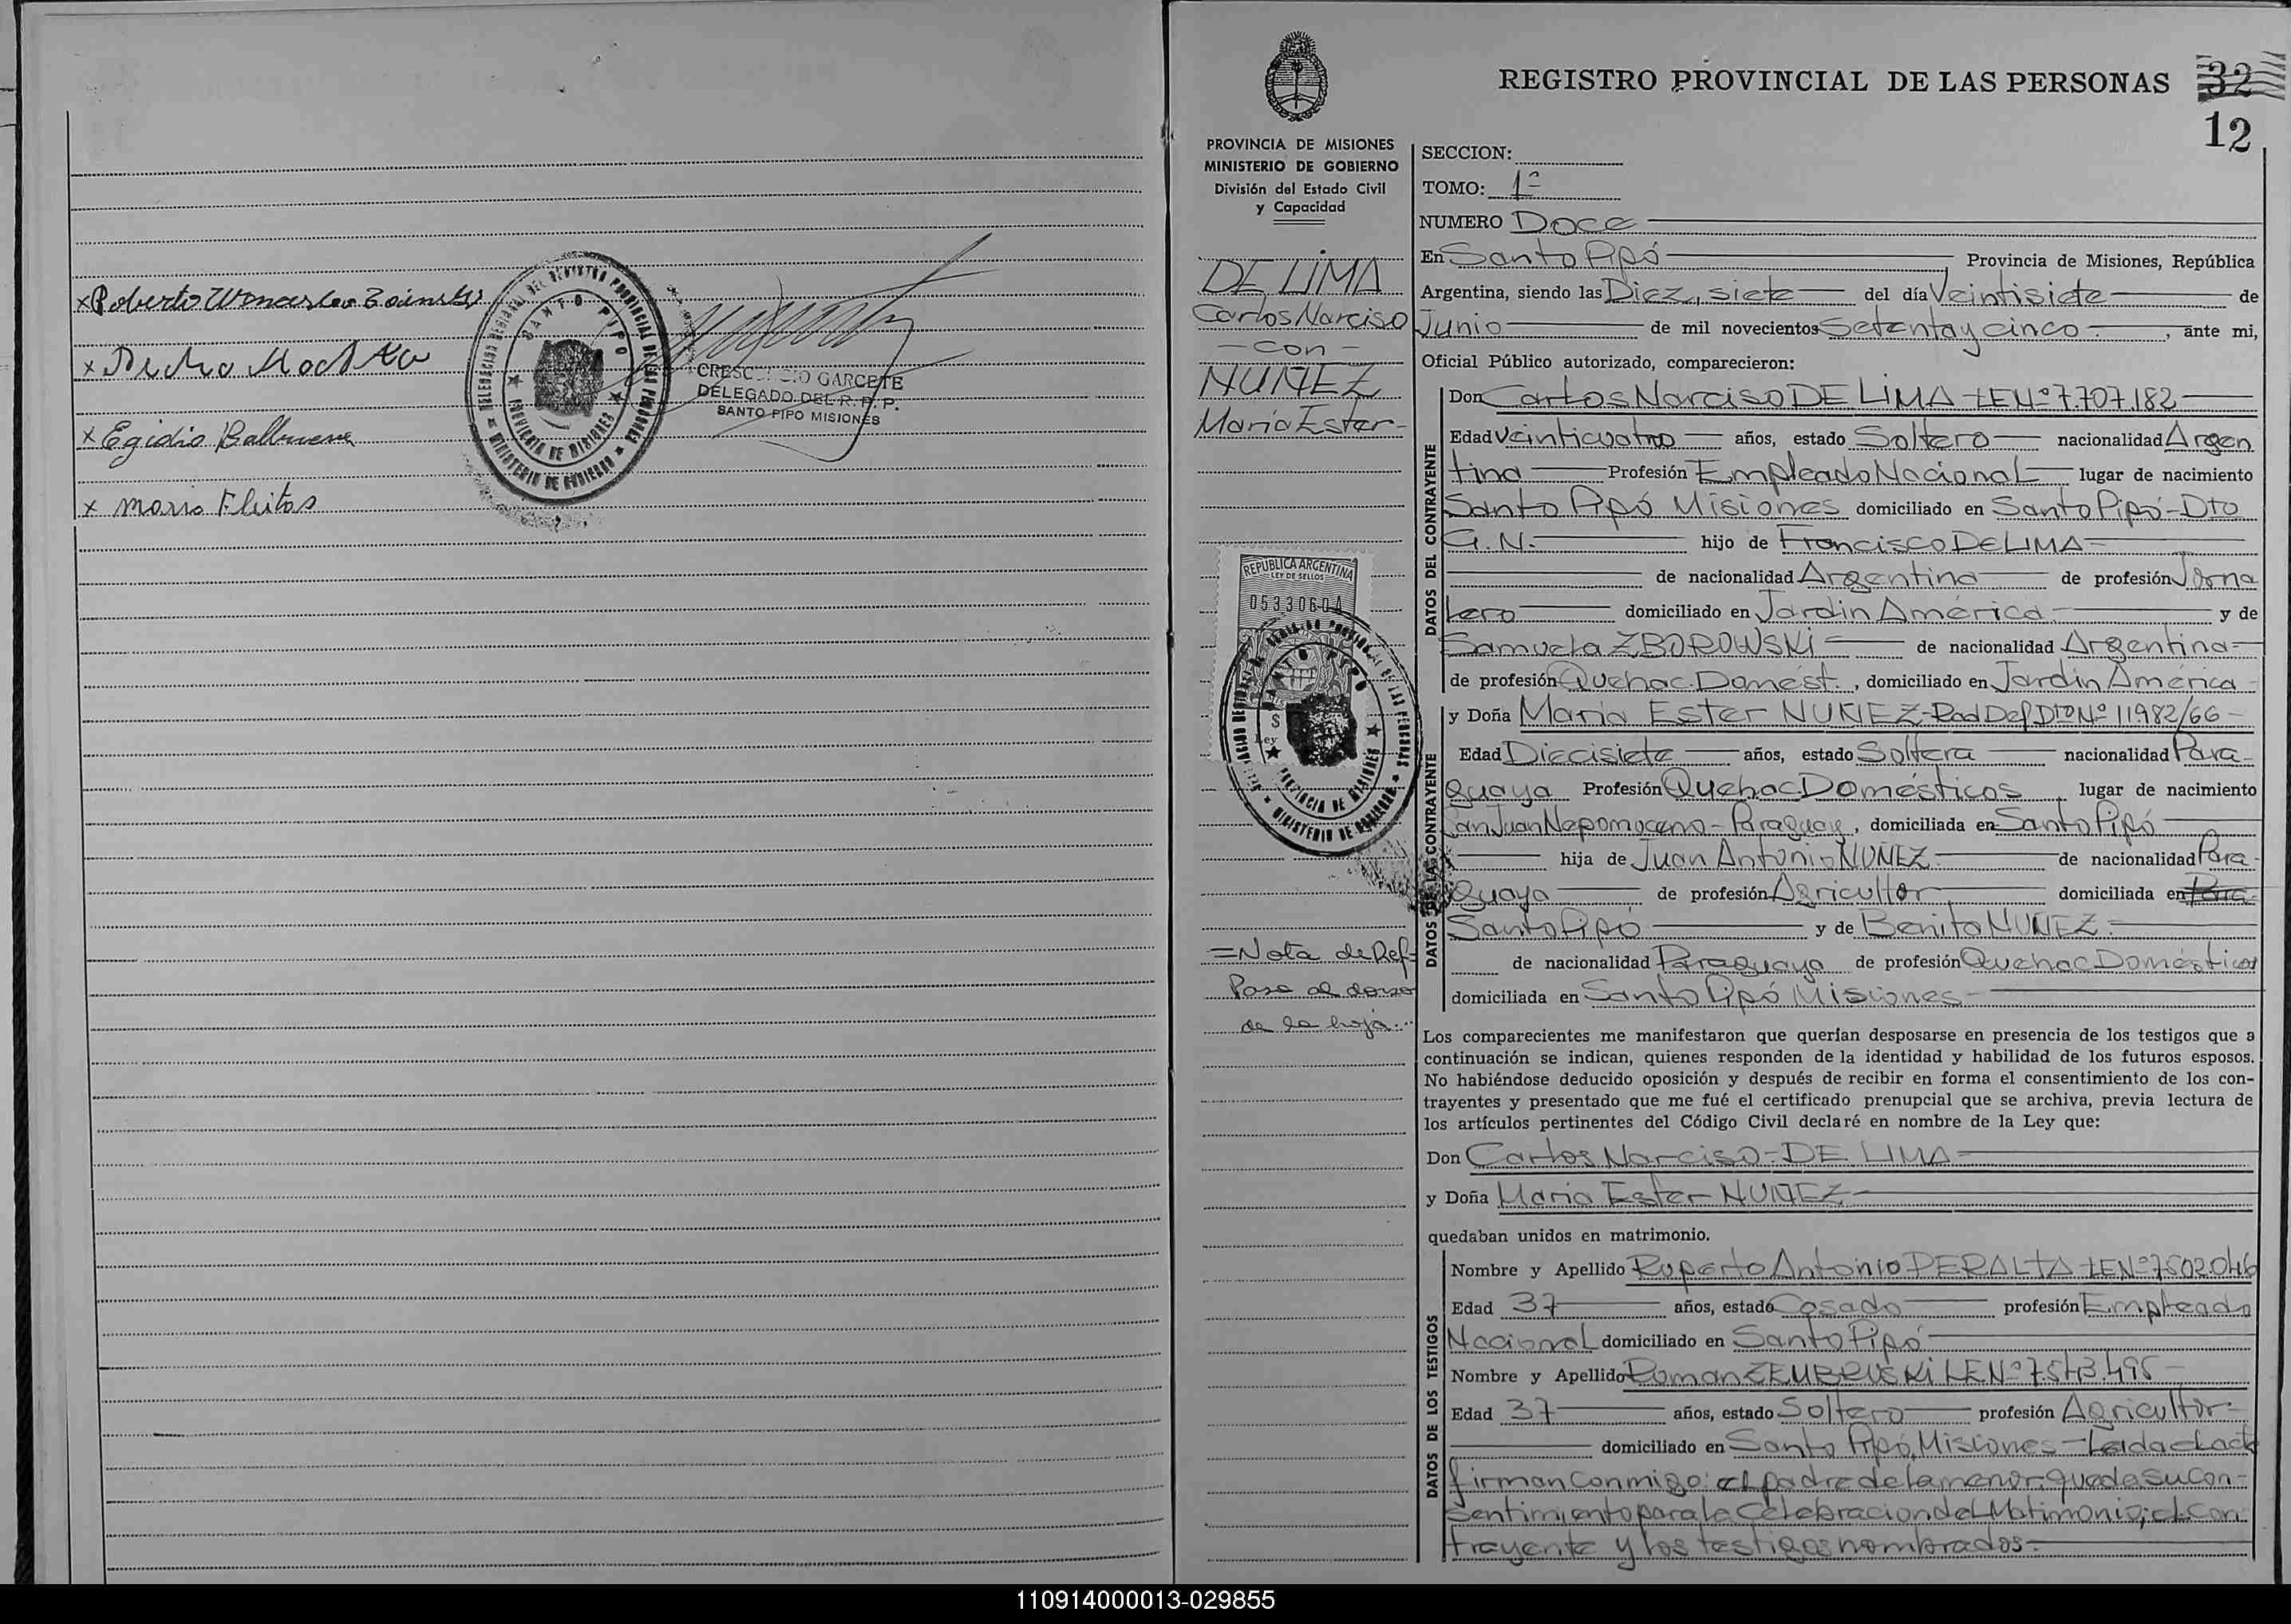 x Roberto Wenceslao
x Pedro
x Egidio Balbuena
x Mario Fleitas
DELEGACION REGIONAL DEL REGISTRO PROVINCIAL DE LAS PERSONAS
SANTO PIPO
PROVINCIA DE MISIONES
MINISTERIO DE GOBIERNO
GARCETE
DELEGADO DEL R. P. P.
SANTO PIPO MISIONES
REGISTRO PROVINCIAL DE LAS PERSONAS 32
12
PROVINCIA DE MISIONES
MINISTERIO DE GOBIERNO
División del Estado Civil
y Capacidad
DE LIMA
Carlos Narciso
- con -
NUÑEZ
María Ester-
REPUBLICA ARGENTINA
LEY DE SELLOS
0533060A
SANTO PIPO
PROVINCIA DE MISIONES
MINISTERIO DE GOBIERNO
=Nota de Ref-
Pase al dorso
de la hoja.-
SECCION:
TOMO: 1º
NUMERO Doce
En Santo Pipó Provincia de Misiones, República
Argentina, siendo las Diez, siete del día Veintisiete de
Junio de mil novecientos Setenta y cinco -, ante mi,
Oficial Público autorizado, comparecieron:
DATOS DEL CONTRAYENTE
Don Carlos Narciso DE LIMA - LE Nº 7.707.182
Edad Veinticuatro años, estado Soltero nacionalidad Argen
tina Profesión Empleado Nacional lugar de nacimiento
Santo Pipó Misiones domiciliado en Santo Pipó - Dto
G.N.- hijo de Francisco DE LIMA -
de nacionalidad Argentina de profesión Jorna
lero domiciliado en Jardín América. y de
Samuela ZBOROWSKi - de nacionalidad Argentina-
de profesión Quehac. Domést., domiciliado en Jardín América -
DATOS DE LAS CONTRAYENTE
y Doña María Ester NUÑEZ - Rad Def. Dto Nº 11.982/66 -
Edad Diecisiete años, estado Soltera nacionalidad Para-
guaya Profesión Quehac Domésticos, lugar de nacimiento
San Juan Nepomuceno - Paraguay, domiciliada en Santo Pipó
hija de Juan Antonio NUÑEZ. de nacionalidad Para-
guaya de profesión Agricultor domiciliada en Para-
Santo Pipó y de Benita NUÑEZ.
de nacionalidad Paraguaya de profesión Quehac Domésticos
domiciliada en Santo Pipó Misiones -
Los comparecientes me manifestaron que querían desposarse en presencia de los testigos que a
continuación se indican, quienes responden de la identidad y habilidad de los futuros esposos.
No habiéndose deducido oposición y después de recibir en forma el consentimiento de los con-
trayentes y presentado que me fué el certificado prenupcial que se archiva, previa lectura de
los artículos pertinentes del Código Civil declaré en nombre de la Ley que:
Don Carlos Narciso - DE LIMA -
y Doña María Ester NUÑEZ -
quedaban unidos en matrimonio.
DATOS DE LOS TESTIGOS
Nombre y Apellido Ruperto Antonio PERALTA LE Nº 7502.046
Edad 37 años, estado Casado profesión Empleado
Nacional domiciliado en Santo Pipó
Nombre y Apellido Roman ZEMBRUSKi LE Nº 7.543.495 -
Edad 37 años, estado Soltero profesión Agricultor-
domiciliado en Santo Pipó, Misiones - Leida el acta
firman conmigo: el padre de la menor, que da su con-
sentimiento para la Celebracion del Matimonio; el con
trayente y los testigos nombrados.-
110914000013-029855